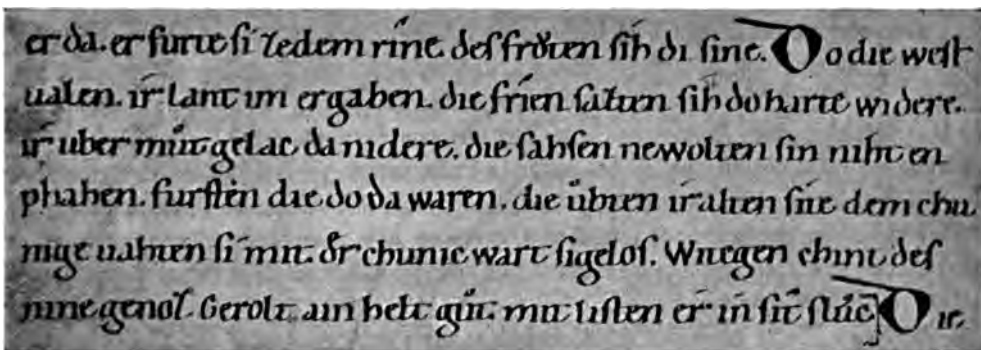 er da. er furte ſi zedem rine. deſ frǒten ſih di ſine. Do die weſt
ualen. ir lant im ergaben. die frien ſatten ſih do harte widere.
ir uber můt gelac da nidere. die ſahſen newolten ſin niht en
phahen. furſten die do da waren. die ůbten ir alten ſite dem chu
nige uahten ſi mit. dr chunic wart ſigeloſ. Witegen chint deſ
nine genoſ. Gerolt ain helt gůt. mit liſten er in ſit ſlůc Die